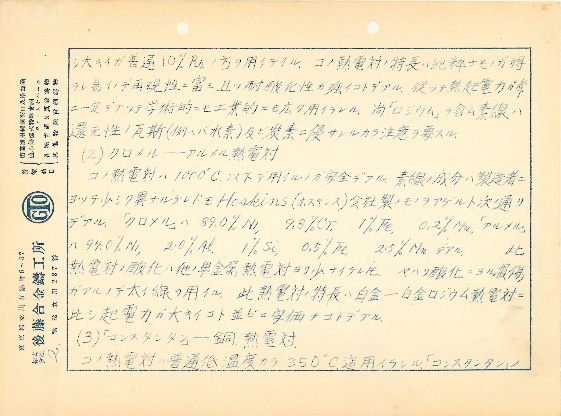 シ大キイガ普通10% Rh ノ方ヲ用イテイル. コノ熱電対ノ特長ハ純粋ナモノガ得
ラレ易イノデ再現性ニ富ミ且ツ耐酸化性ガ強イコトデアル. 従ッテ熱起電力ガ常
ニ一定デアッテ学術的ニモ工業的ニモ広ク用イラレル. 尚「ロジウム」ヲ含ム素線ハ
還元性ノ瓦斯(例ヘバ水素)及ビ炭素ニ侵サレルカラ注意ヲ要スル.
(2) クロメル—アルメル熱電対
コノ熱電対ハ1000°C以下デ用イルノガ安全デアル. 素線ノ成分ハ製造者ニ
ヨッテ少シク異ナルケレドモ Hoskins (ホスキンス) 会社製ノモノヲアゲルト次ノ通リ
デアル. 「クロメル」ハ 89.0% Ni, 9.8% Cr, 1% Fe, 0.2% Mn, 「アルメル」
ハ 94.0% Ni, 2.0% Al, 1% Si, 0.5% Fe, 2.5% Mn デアル 此
熱電対ノ酸化ハ他ノ卑金属熱電対ヨリ少ナイケレ共 ヤハリ酸化ニヨル損傷
ガアルノデ太イ線ヲ用イル. 此熱電対ノ特長ハ白金—白金ロジウム熱電対ニ
比シ起電力ガ大キイコト並ビニ安価ナコトデアル.
(3)「コンスタンタン」—銅 熱電対
コノ熱電対ハ普通低温度カラ350°C迄用イラレル.「コンスタンタン」ノ
GTO
後藤合金鋳工所